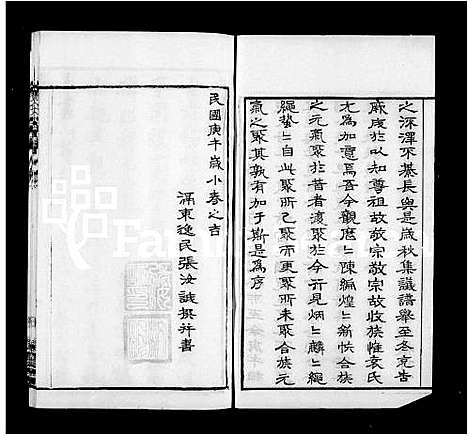 之深澤不綦長與是歲秋集議譜舉至冬克告
厥成於以知尊祖故敬宗敬宗故收族惟袁氏
尤為加意焉吾今觀麐〻陳編煌〻新帙合族
之元氣聚於昔者渙聚於今行見烟〻麟〻繩
繩蟄〻此聚所已聚而更聚所未聚合族元
氣之聚其孰有加于斯是為序
民國庚午歲小春之吉
滆東逸民張汝誠撰并書